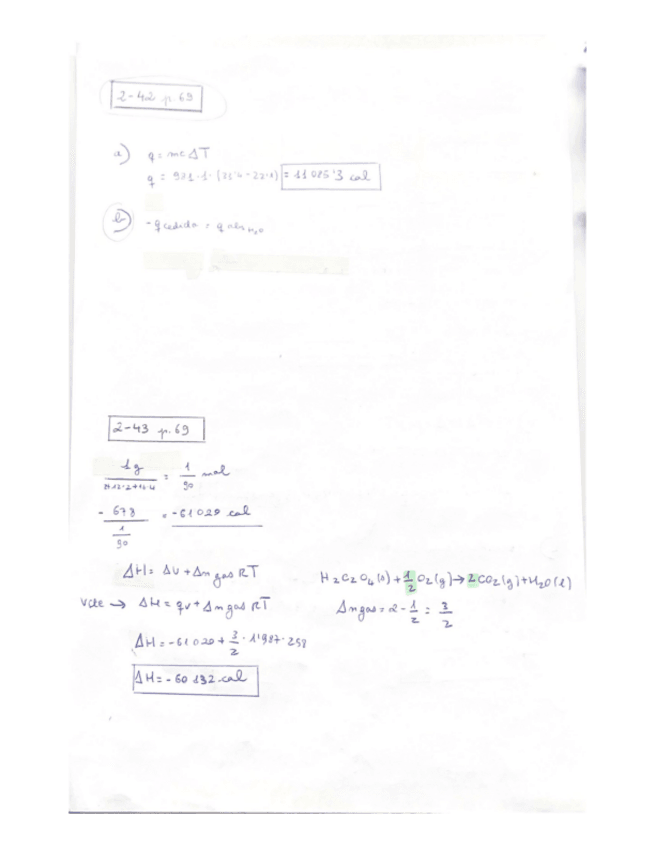 2-42 p.69
a) q = mcΔT
q = = 11085'3 cal
b) - q cedida = q abs H₂O
2-43 p.69
1g / = 1/90 mol
- 678 / (1/90) = -61020 cal
ΔH = ΔU + Δn gas RT
H₂C₂O₄(s) + 1/2 O₂(g) → 2CO₂(g) + H₂O(l)
V cte → ΔH = qv + Δn gas RT
Δn gas = 2 - 1/2 = 3/2
ΔH = -61020 + 3/2 · 1'987 · 298
ΔH = -60132 cal